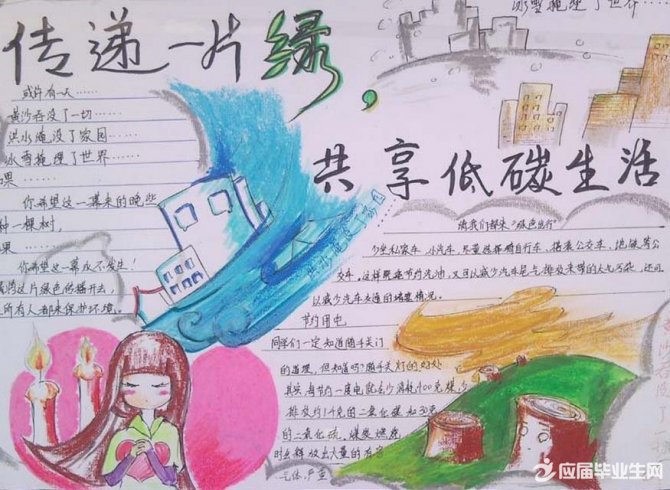 传递一片绿，
共享低碳生活
冰雪掩埋了世界……
或许有一天……
黄沙吞没了一切……
洪水淹没了家园……
冰雪掩埋了世界……
果
你希望这一幕来的晚些
种一棵树，
果
你希望这一幕永不发生！
这片绿色传播开去，
所有人都来保护环境。
洪水淹没了家园
请我们都来"绿色出行"
少坐私家车、小汽车，尽量选择骑自行车、搭乘公交车、地铁等公
交车。这样既能节约汽油，又可以减少汽车尾气排放带来的大气污染，还可
以减少汽车交通的堵塞情况。
节约用电
同学们一定知道随手关灯
的道理，但知道吗？随手关灯的好处
其实每节约一度电就少消耗400克煤，少
排放约1千克的二氧化碳和30克
的二氧化硫，煤炭燃烧
时会释放出大量的有害
气体，严重
应届毕业生网